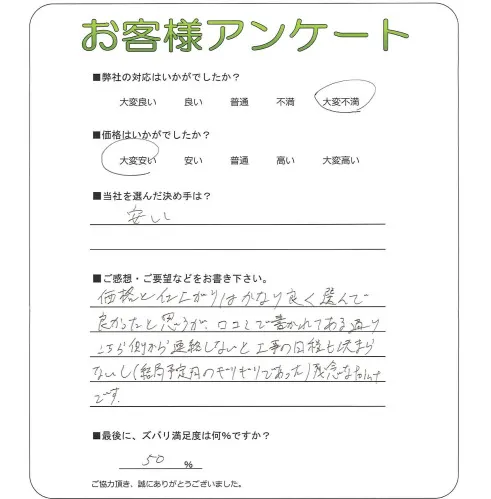 お客様アンケート
■弊社の対応はいかがでしたか？
大変良い 良い 普通 不満 大変不満
■価格はいかがでしたか？
大変安い 安い 普通 高い 大変高い
■当社を選んだ決め手は？
安い
■ご感想・ご要望などをお書き下さい。
価格と仕上がりはかなり良く選んで
良かったと思うが、口コミで書かれてある通り
こちら側から連絡しないと工事の日程も決まら
ないし(結局予定月のギリギリであった)残念な
です。
■最後に、ズバリ満足度は何％ですか？
50 %
ご協力頂き、誠にありがとうございました。